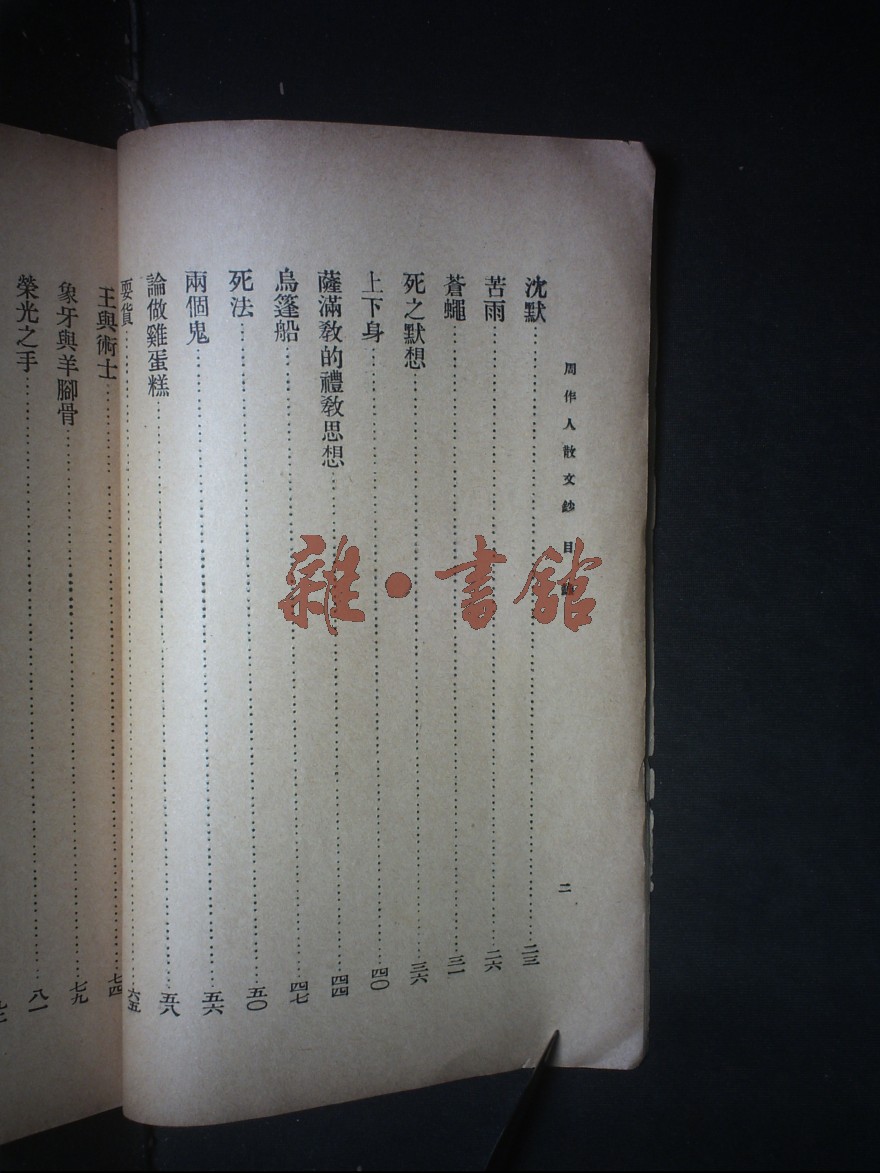 周作人散文鈔 目錄
二
沈默……二三
苦雨……二六
蒼蠅……三一
死之默想……三六
上下身……四〇
薩滿教的禮教思想……四四
烏篷船……四七
死法……五〇
兩個鬼……五六
論做雞蛋糕……五八
耍貨……六五
王與術士……七四
象牙與羊腳骨……七九
榮光之手……八一
雜·書館